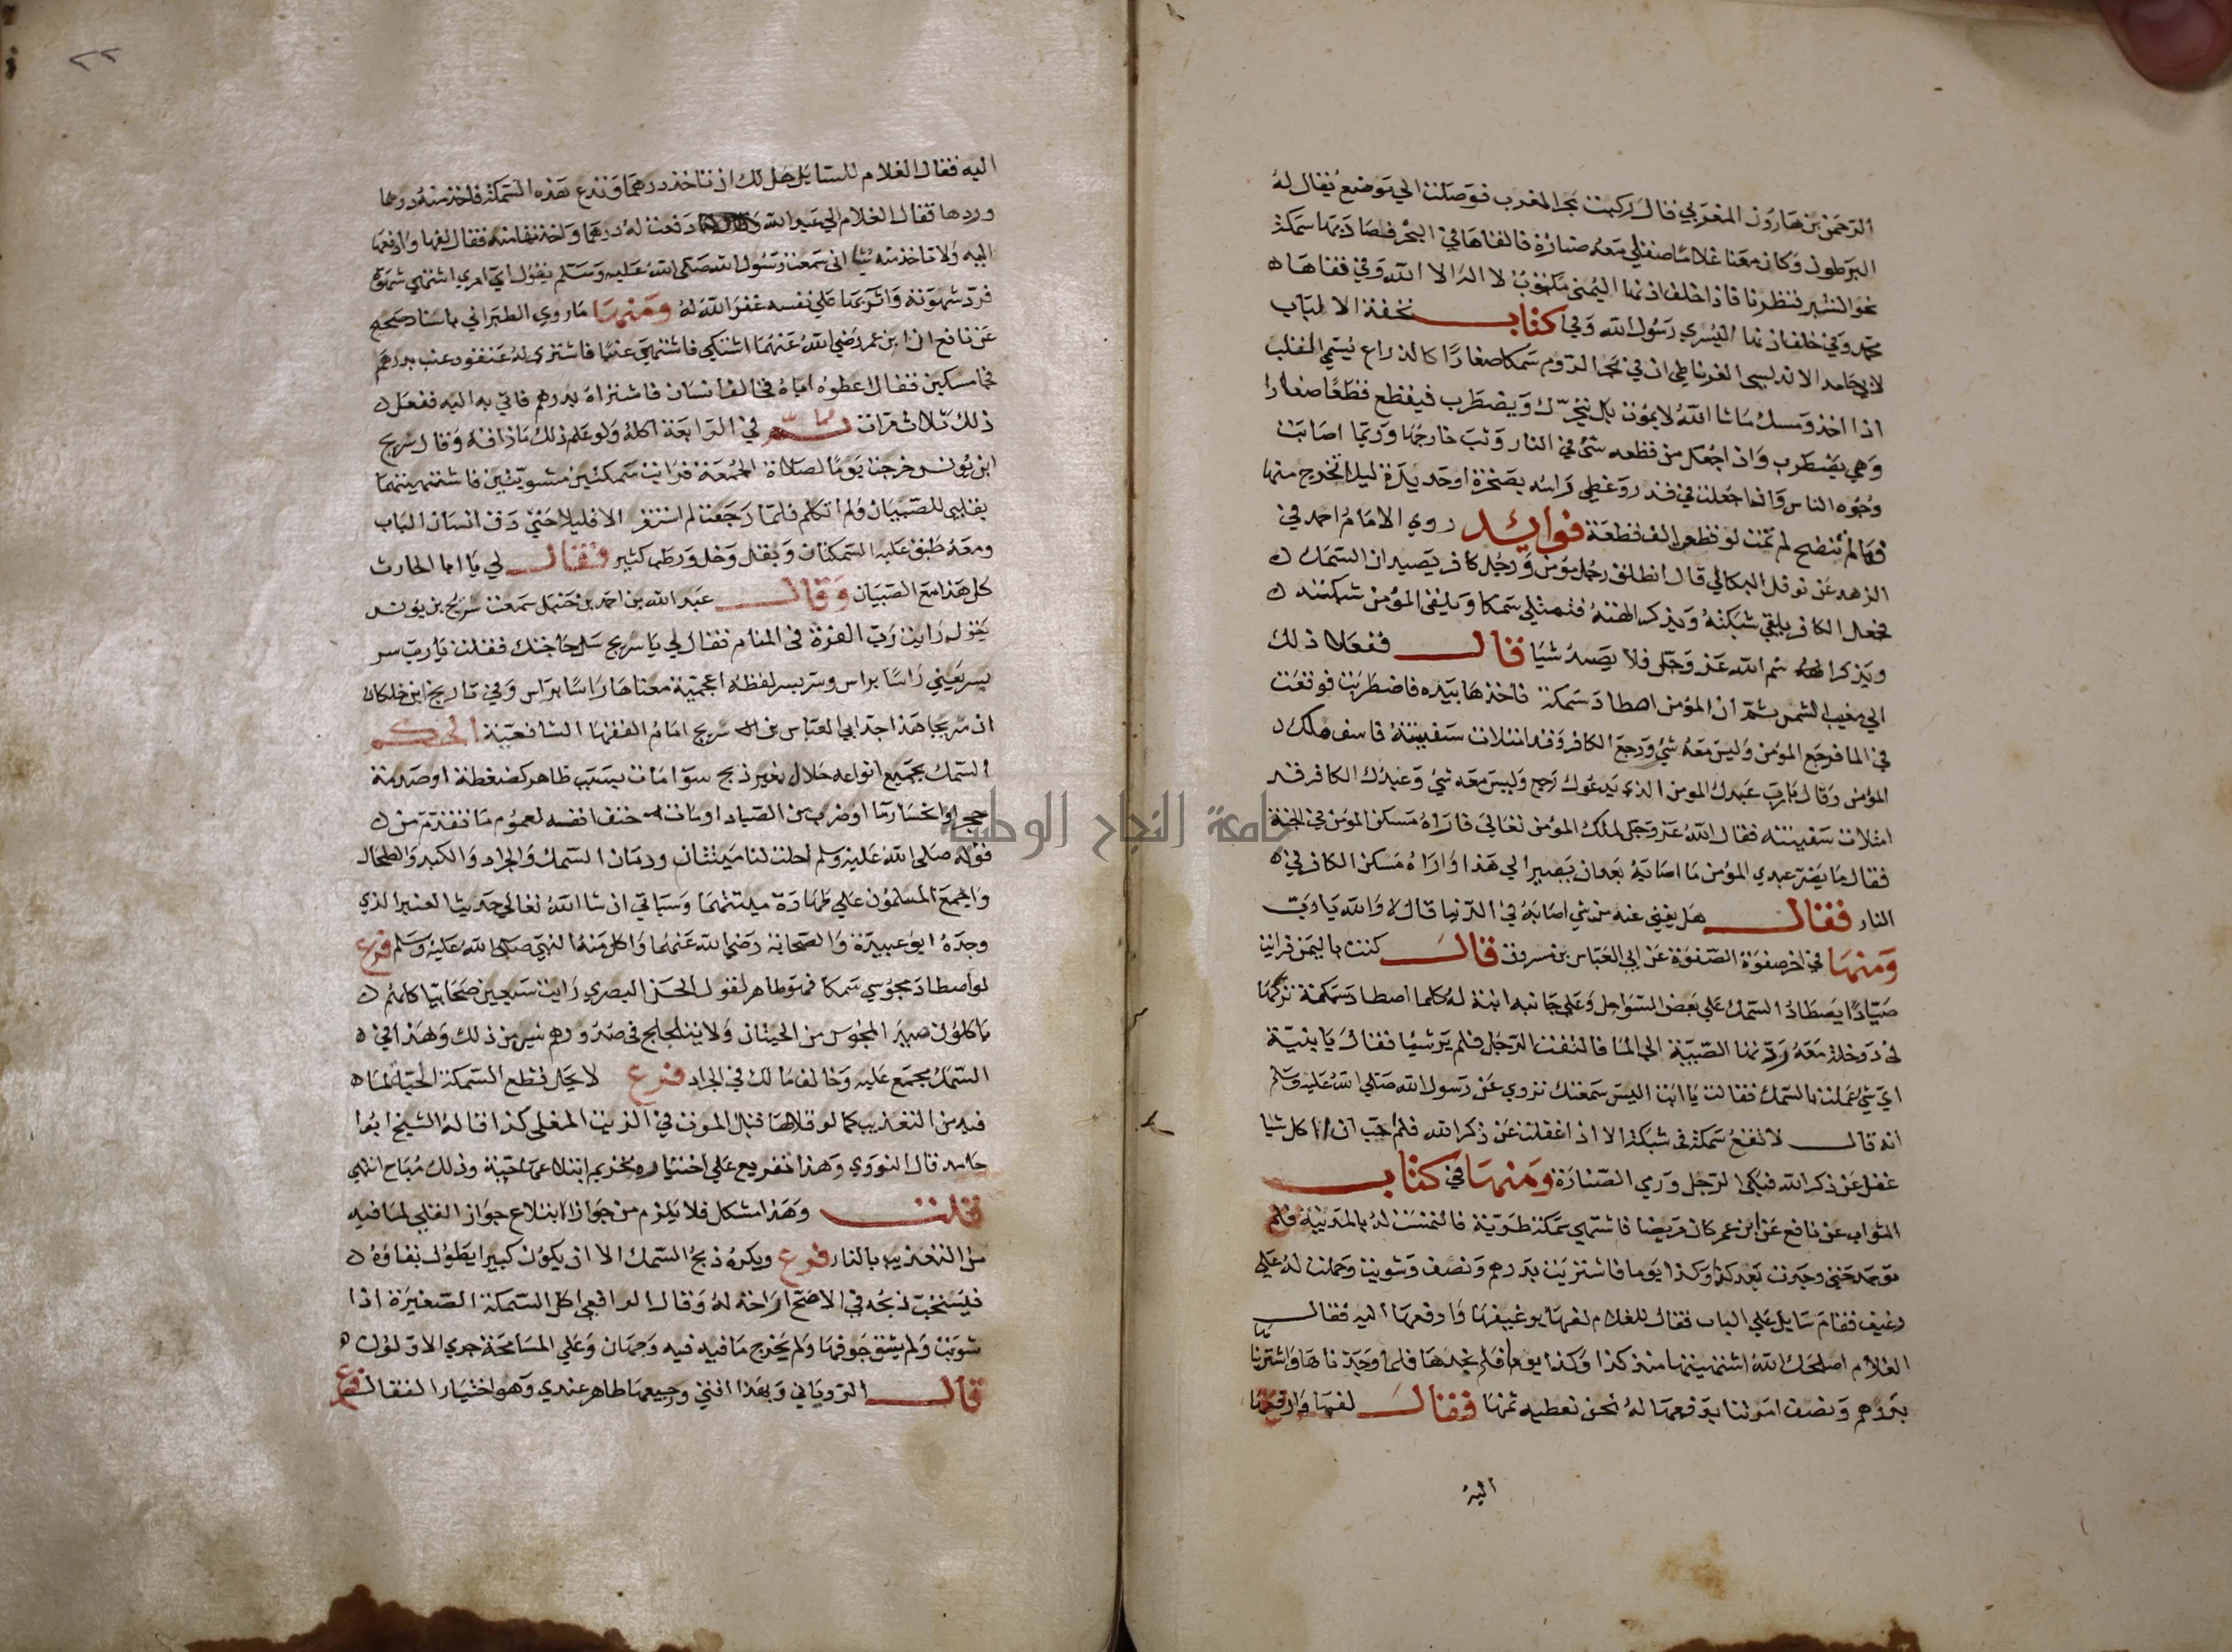 الرحمن بن هارون المغربي قال ركبت بحر المغرب فوصلت الي موضع يقال له
البرطون وكان معنا غلاما صقلي معه صنارة فالقاها في البحر فصاد بها سمكة
نحو الشبر فنظرنا فاذا خلف اذنها اليمنى مكتوب لا اله الا الله وفي قفاها
محمد وفي خلف اذنها اليسري رسول الله وفي كتاب تحفة الالباب
لابي حامد الاندلسي الغرناطي ان في بحر الروم سمكا صغارا كالذراع يسمي المغلب
اذا اخذ ومسك ما شا الله لا يموت بل يتحرك ويضطرب فيقطع قطعا صغارا
وهي يضطرب واذا جعل من قطعه شئ في النار وثب خارجها وربما اصابت
وجوه الناس واذا جعلت في قدر وغطي راسه بصخرة او حديدة ليلا تخرج منها
فما لم تنضج لم تمت لو قطع الف قطعة فوايد روي الامام احمد في
الزهد عن نوف البكالي قال انطلق رجل مومن ورجل كافر يصيدان السمك
فجعل الكافر يلقي شبكته ويذكر الهته فتمتلي سمكا ويلقى المؤمن شبكته
ويذكر اسم الله عز وجل فلا يصيد شيا قال ففعلا ذلك
الي مغيب الشمس ثم ان المؤمن اصطاد سمكة فاخذها بيده فاضطربت فوقعت
في الما فرجع المؤمن وليس معه شئ ورجع الكافر وقد امتلات سفينته فاسف ملك
المؤمن وقال يا رب عبدك المومن الذي يدعوك رجع وليس معه شي وعبدك الكافر قد
امتلات سفينته فقال الله عز وجل لملك المؤمن تعالى فاراه مسكن المؤمن في الجنة
فقال ما يضر عبدي المؤمن ما اصابه بعد ان يصير الي هذا واراه مسكن الكافر في
النار فقال هل يغني عنه من شي اصابه في الدنيا قال لا والله يا رب
ومنها في اخر صفوة الصفوة عن ابي العباس بن مسروق قال كنت باليمن فرايت
صيادا يصطاد السمك علي بعض السواحل وعلي جانبه ابنة له كلما اصطاد سمكة تركها
في دوخلة معه ردتها الصبية الي الما فالتفت الرجل فلم ير شيا فقال يا بنية
اي شي عملت بالسمك فقالت يا ابت اليس سمعتك تروي عن رسول الله صلى الله عليه وسلم
انه قال لا تقع سمكة في شبكة الا اذا غفلت عن ذكر الله فلم احب ان اكل شيا
غفل عن ذكر الله فبكى الرجل ورمي الصنارة ومنها في كتاب
الثواب عن نافع عن ابن عمر كان مريضا فاشتهي سمكة طرية فالتمست له بالمدينة فلم
توجد حتى وجدت بعد كذا وكذا يوما فاشتريت بدرهم ونصف وشويت وحملت له علي
رغيف فقام سايل علي الباب فقال للغلام لفها برغيفها وادفعها اليه فقال
الغلام اصلحك الله اشتهيتها منذ كذا وكذا يوما فلم نجدها فلما وجدناها واشتريناها
بدرهم ونصف امرتنا بدفعها له نحن نعطيه ثمنها فقال لفها وادفعها
اليه
٢٢
اليه فقال الغلام للسايل هل لك ان تاخذ درهما وتدع هذه السمكة فاخذ منه درهما
وردها فقال الغلام الي عبد الله دفعت له درهما واخذتها منه فقال لفها وادفعها
اليه ولا تاخذ منه شيا اني سمعت رسول الله صلى الله عليه وسلم يقول اي امري اشتهي شهوة
فرد شهوته واثر بها علي نفسه غفر الله له ومنها ما روي الطبراني باسناد صحيح
عن نافع ان ابن عمر رضي الله عنهما اشتكي فاشتهي عنبا فاشتري له عنقود عنب بدرهم
فجا مسكين فقال اعطوه اياه فخالف انسان فاشتراه بدرهم فاتي به اليه ففعل
ذلك ثلاث مرات ثم في الرابعة اكله ولو علم ذلك ما ذاقه وقال سريج
ابن يونس خرجت يوما لصلاة الجمعة فرايت سمكتين مشويتين فاشتهيتهما
بقلبي للصبيان ولم اتكلم فلما رجعت لم استقر الا قليلا حتى دق انسان الباب
ومعه طبق عليه السمكتان وبقل وخل ورطب كثير فقال لي يا ابا الحارث
كل هذا مع الصبيان وقال عبد الله بن احمد بن حنبل سمعت سريج بن يونس
يقول رايت رب العزة في المنام فقال لي يا سريج سل حاجتك فقلت يا رب سر
بسر يعني راسا براس وسر بسر لفظة اعجمية معناها راسا براس وفي تاريخ ابن خلكان
ان سريجا هذا جد ابي العباس بن سريج امام الفقها الشافعية الحكم
السمك بجميع انواعه حلال بغير ذبح سوا مات بسبب ظاهر كضغطة او صدمة
حجر او انحسار ما او ضرب من الصياد او مات حتف انفه لعموم ما تقدم من
قوله صلى الله عليه وسلم احلت لنا ميتتان ودمان السمك والجراد والكبد والطحال
واجمع المسلمون علي طهارة ميتتهما وسياتي ان شا الله تعالي حديث العنبر الذي
وجده ابو عبيدة والصحابة رضي الله عنهم واكل منه النبي صلى الله عليه وسلم فرع
لو اصطاد مجوسي سمكا فهو طاهر لقول الحسن البصري رايت سبعين صحابيا كلهم
ياكلون صيد المجوس من الحيتان ولا يتلجلج في صدورهم شي من ذلك وهذا في
السمك مجمع عليه وخالف مالك في الجراد فرع لا يحل قطع السمكة الحية لما
فيه من التعذيب كما لو قلاها قبل الموت في الزيت المغلي كذا قاله الشيخ ابوا
حامد قال النووي وهذا تفريع علي اختياره تحريم ابتلاعها حية وذلك مباح انتهي
قلت وهذا مشكل فلا يلزم من جواز الابتلاع جواز القلي لما فيه
من التعذيب بالنار فرع ويكره ذبح السمك الا ان يكون كبيرا يطول بقاؤه
فيستحب ذبحه في الاصح اراحة له وقال الرافعي اكل السمكة الصغيرة اذا
شويت ولم يشق جوفها ولم يخرج ما فيه فيه وجهان وعلي المسامحة جري الاولون
قال الروياني وبهذا افتي وجميعها طاهر عندي وهو اختيار القفال فرع
جامعة النجاح الوطنية